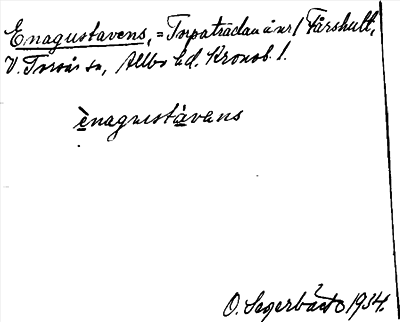 Enagustavens, = Torpaträdan å nr 1 Fårshult,
V. Torsås sn, Allbo hd. Kronob. l.
ènagustàvens
O. Segerbäck 1934.